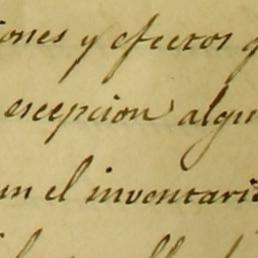 iones y efectos
escepcion algu
un el inventari